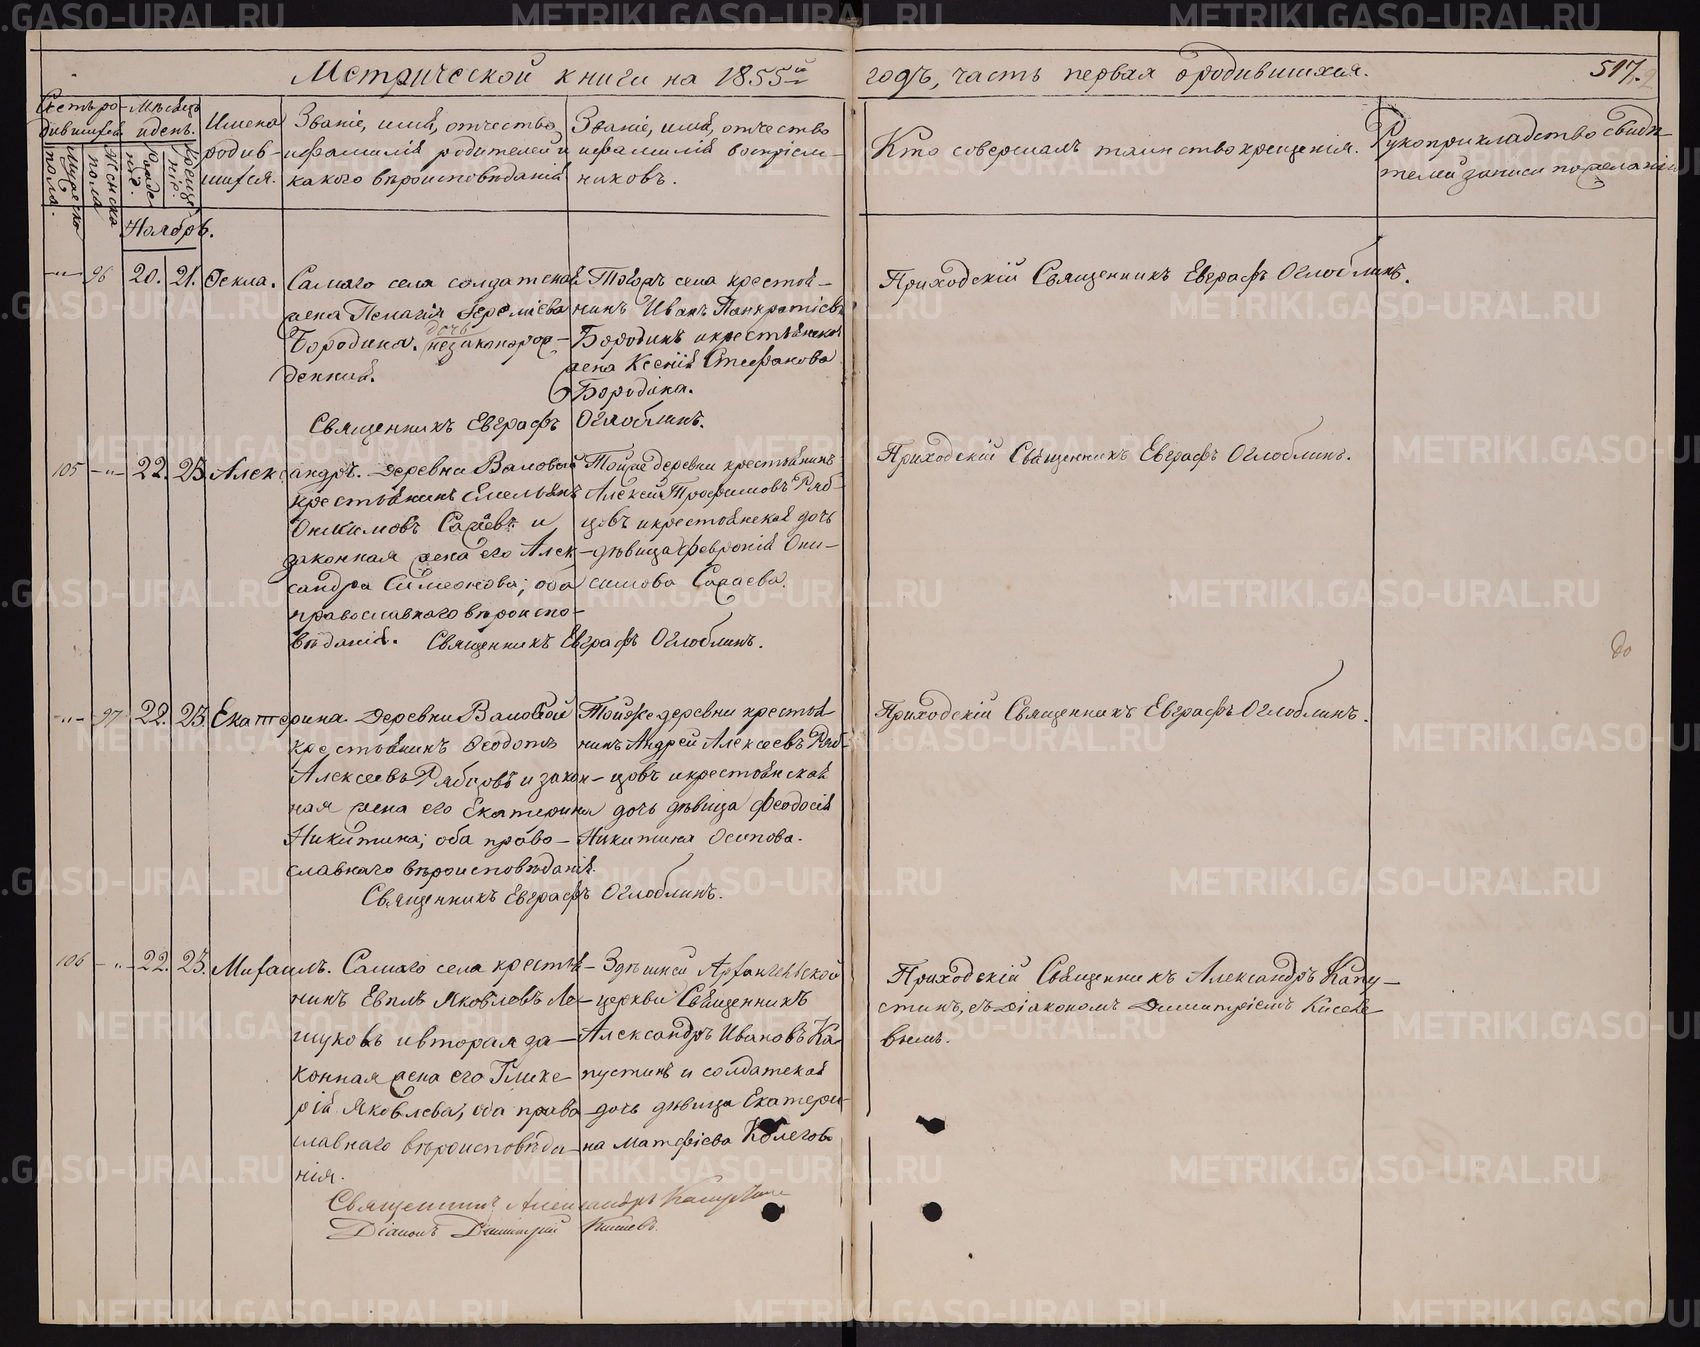 Метрической книги на 1855й годъ, часть первая о родившихся. 517.
Счетъ ро-
дившихся
Мужеска
пола.
Женска
пола
Мѣсяцъ
и день.
Рожде
нія.
Креще
нія.
Имена
родив-
шихся.
Званіе, имя, отчество
и фамилія родителей и
какого вѣроисповѣданія
Званіе, имя, отчество
и фамилія воспріем-
никовъ.
Кто совершалъ таинство крещенія.
Рукоприкладство свидѣ-
телей записи по желанію
Ноябрь.
-"- 96 20. 21. Фекла.
Самаго села солдатская
жена Пелагія Іереміева
Бородина. дочь незаконорож-
денная.
Тогожъ села крестья-
нинъ Иванъ Панкратіевъ
Бородинъ и крестьянская
жена Ксенія Стефанова
Бородина.
Священникъ Евграфъ Оглоблинъ.
Приходскій Священникъ Евграфъ Оглоблинъ.
105 -"- 22. 23. Александръ.
Деревни Валовой
крестьянинъ Емельянъ
Онисимовъ Сараевъ и
законная жена его Алек-
сандра Симеонова; оба
православнаго вѣроиспо-
вѣданія.
Тойже деревни крестьянинъ
Алексѣй Трофимовъ Ряб-
цовъ и крестьянская дочь
дѣвица Февронія Они-
симова Сараева.
Священникъ Евграфъ Оглоблинъ.
Приходскій Священникъ Евграфъ Оглоблинъ.
-"- 97 22. 23. Екатерина.
Деревни Валовой
крестьянинъ Феодотъ
Алексеевъ Рябцовъ и закон-
ная жена его Екатерина
Никитина; оба право-
славнаго вѣроисповѣданія.
Тойже деревни крестья-
нинъ Андрей Алексеевъ Ряб-
цовъ и крестьянская
дочь дѣвица Феодосія
Никитина Осипова.
Священникъ Евграфъ Оглоблинъ.
Приходскій Священникъ Евграфъ Оглоблинъ.
106 -"- 22. 23. Михаилъ.
Самаго села крестья-
нинъ Евплъ Яковлевъ Ле-
щуковъ и вторая за-
конная жена его Глике-
рія Яковлева; оба право
славнаго вѣроисповѣда-
нія.
Здѣшней Архангельской
церкви Священникъ
Александръ Ивановъ Ка-
пустинъ и солдатская
дочь дѣвица Екатери-
на Матфіева Колегова
Священникъ Александръ Капустинъ
Діаконъ Димитрій Киселевъ.
Приходскій Священникъ Александръ Капу-
стинъ, съ Діакономъ Димитріемъ Киселе-
вымъ.
до
METRIKI.GASO-URAL.RU